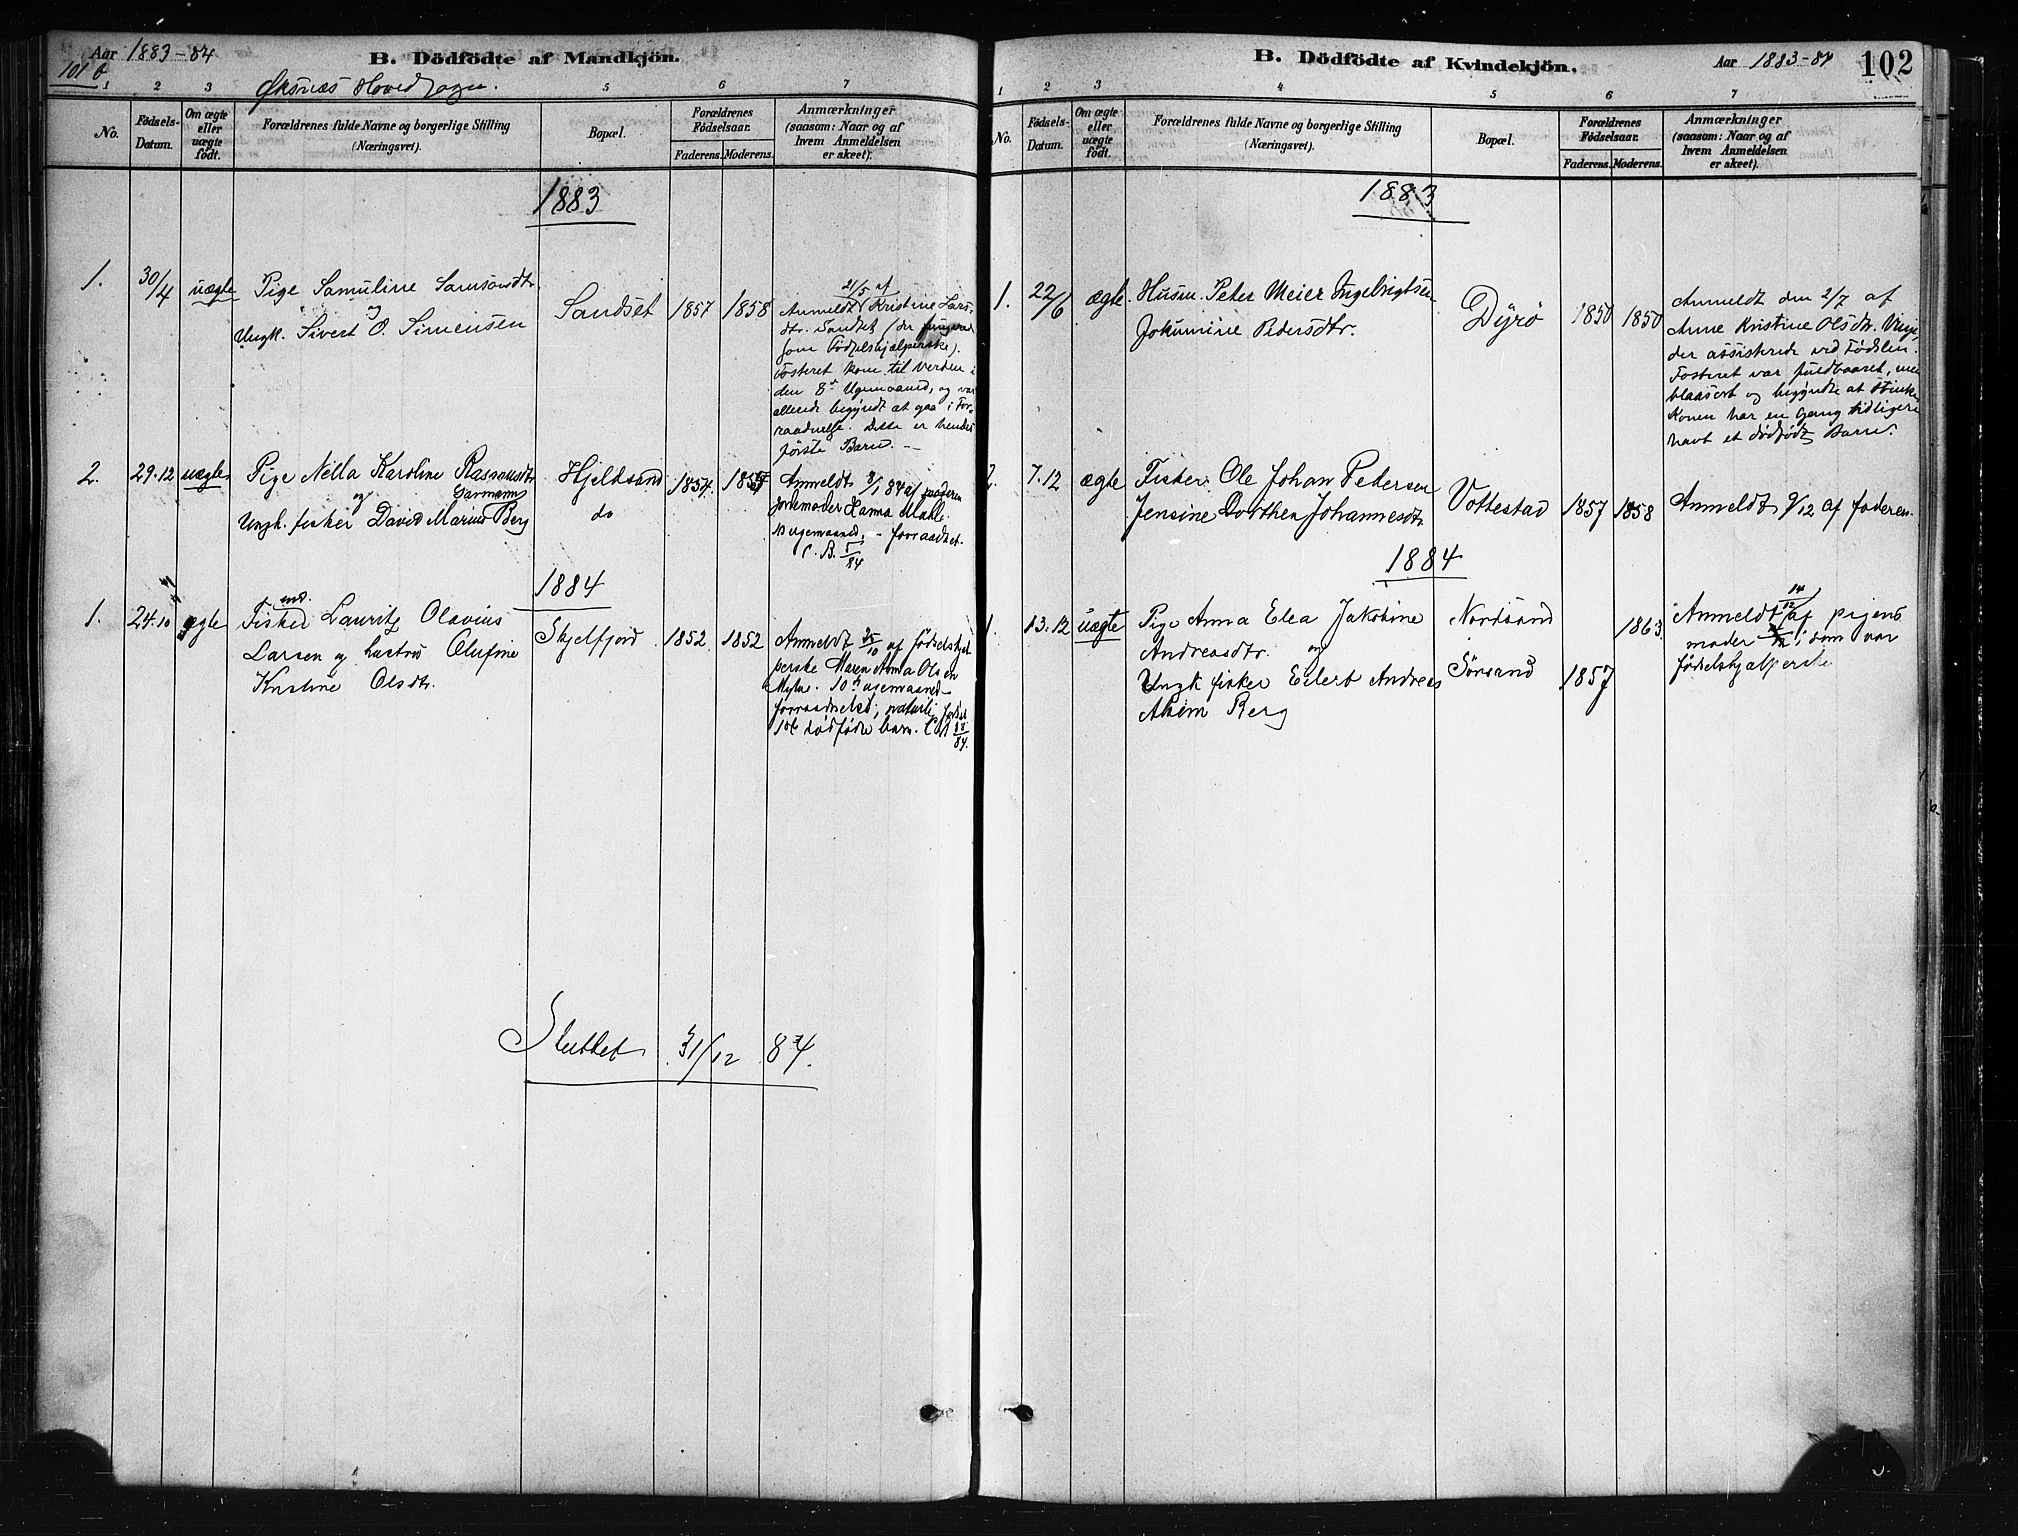 Aar 1883-84
101 b
B. Dödfödte af Mandkjön.
Øksnæs Hovedsogn.
1 2 3 5 6 7
No.
Födsels-Datum.
Om ægte eller uægte födt.
Forældrenes fulde Navne og borgerlige Stilling
(Næringsvei).
Bopæl.
Forældrenes Födselsaar.
Faderens. Moderens.
Anmærkninger
(saasom: Naar og af
hvem Anmeldelsen
er skeet).
1883
1. 30/4 uægte Pige Samuline Samsonsdtr.
og
Ungk. Sivert O. Simensen
Sandset 1857 1858
21/5 af
Anmeldt Kristine Lars-
dtr. Sandset (der fungered
som Födselshjælperske).
Fosteret kom til Verden i
den 8de Ugemaaned, og var
allerede begyndt at gaa i For-
raadnelse. Dette er hendes
første Barn. —
2. 29.12 uægte Pige Nella Karoline Rasmusdtr.
og
Ungk. fisker David Marius Garmann Berg
Hjeldsand
do
1854. 1857
Anmeldt 3/1 84 af faderen
Jordemoder Hanna Malle
ugemaaned. - forraadnet.
C. B. 5/84
1884
1. 24.10 ægte Fisker Lauritz Olavius
Larsen og hustru Olufine
Kristine Olsdtr.
Skjelfjord 1852 1852
Anmeldt 25/10 af fødselshjæl-
perske Maren Anna Olsen
Myhre. 10de ugemaaned
forraadnelse;
1ste dødfødte barn.
Sluttet 31/12 84.
B. Dödfödte af Kvindekjön.
Aar 1883-84
102
1 2 3 4 5 6 7
No.
Födsels-Datum.
Om ægte eller uægte födt.
Forældrenes fulde Navne og borgerlige Stilling
(Næringsvei).
Bopæl.
Forældrenes Födselsaar.
Faderens. Moderens.
Anmærkninger
(saasom: Naar og af
hvem Anmeldelsen
er skeet).
1883
1. 22/6 ægte Husm. Peter Meier Ingebrigtsen
Jokumine Pedersdtr.
Dyrø 1850 1850
Anmeldt den 2/7 af
Anne Kristine Olsdtr. Vinje,
der assisterede ved Fødslen.
Fosteret var fuldbaaret, men
blaasort og begyndte at stinke
Konen har en Gang tidligere
havt et dødfødt Barn.
2. 7.12 ægte Fisker Ole Johan Pedersen
Jensine Dorthea Johannesdtr.
Vottestad 1857 1858 Anmeldt 9/12 af faderen.
1884
1. 13.12 uægte Pige Anna Elea Jakobine
Andreasdtr. og
Ungk fisker Eilert Andreas
Akim Berg
Nordsand
Sørsand
1857 1863
Anmeldt 14/12 af pigens
moder, som var
fødselshjælperske